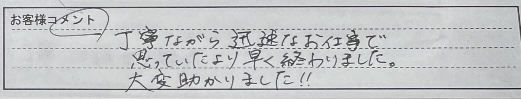 お客様コメント
丁寧ながら迅速なお仕事で
思っていたより早く終わりました。
大変助かりました!!